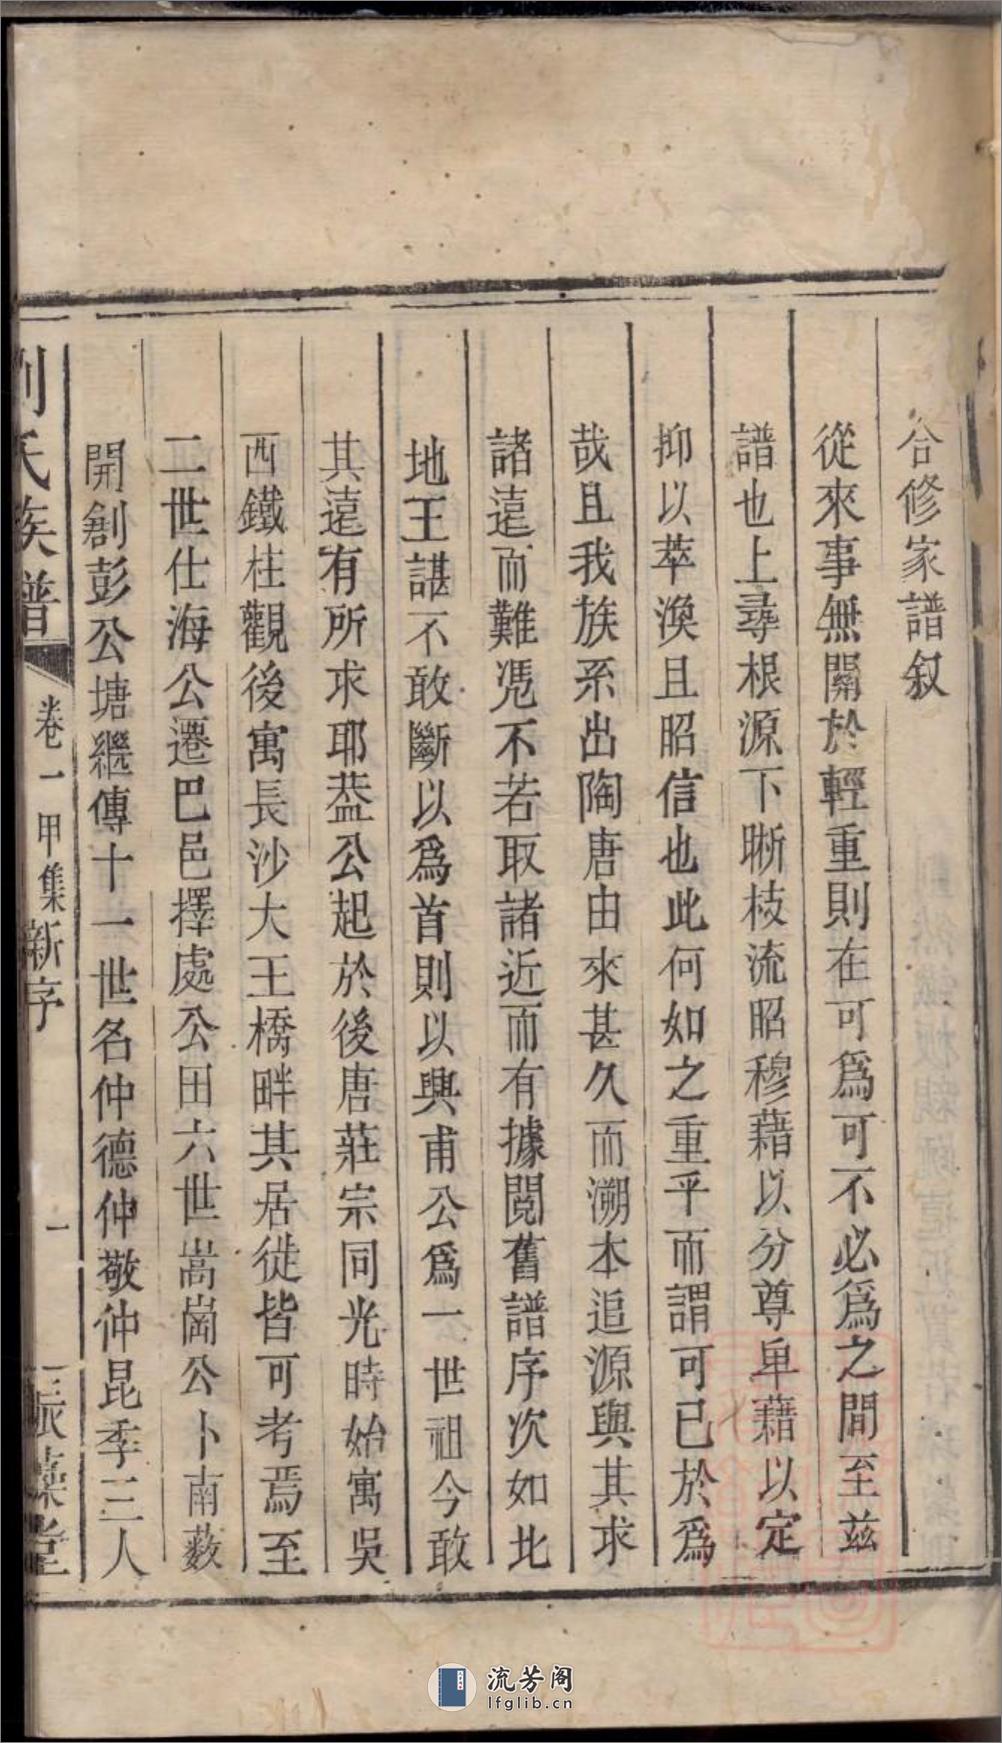 合修家譜叙
從來事無關於輕重則在可爲可不必爲之間至茲
譜也上尋根源下晰枝流昭穆藉以分尊卑藉以定
抑以萃渙且昭信也此何如之重乎而謂可已於爲
哉且我族系出陶唐由來甚久而溯本追源與其求
諸遠而難凴不若取諸近而有據閱舊譜序次如北
地王諶不敢斷以爲首則以興甫公爲一世祖今敢
其遠有所求耶葢公起於後唐莊宗同光時始寓吳
西鐵柱觀後寓長沙大王橋畔其居徙皆可考焉至
二世仕海公遷巴邑擇處公田六世嵩崗公卜南薮
開創彭公塘繼傳十一世名仲德仲敬仲昆季三人
劉氏族譜
卷一甲集新序
一
藜堂
流芳阁
lfglib.cn